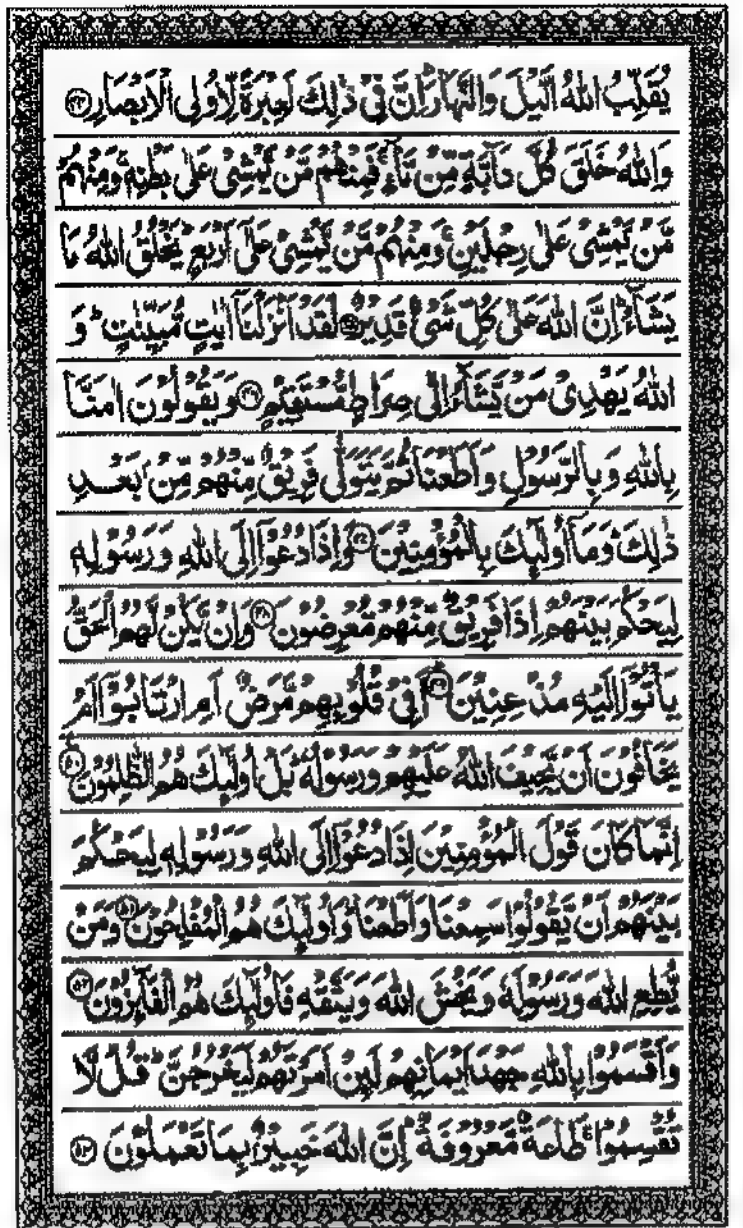 يُقَلِّبُ اللّٰهُ الَّيْلَ وَالنَّهَارَ ؕ اِنَّ فِىْ ذٰلِكَ لَعِبْرَةً لِّاُولِى الْاَبْصَارِ ﴿۴۴﴾
وَاللّٰهُ خَلَقَ كُلَّ دَآبَّةٍ مِّنْ مَّآءٍ ۚ فَمِنْهُمْ مَّنْ يَّمْشِىْ عَلٰى بَطْنِهٖ ۚ وَمِنْهُمْ
مَّنْ يَّمْشِىْ عَلٰى رِجْلَيْنِ ۚ وَمِنْهُمْ مَّنْ يَّمْشِىْ عَلٰٓى اَرْبَعٍ ؕ يَخْلُقُ اللّٰهُ مَا
يَشَآءُ ؕ اِنَّ اللّٰهَ عَلٰى كُلِّ شَىْءٍ قَدِيْرٌ ﴿۴۵﴾ لَقَدْ اَنْزَلْنَاۤ اٰيٰتٍ مُّبَيِّنٰتٍ ؕ وَ
اللّٰهُ يَهْدِىْ مَنْ يَّشَآءُ اِلٰى صِرَاطٍ مُّسْتَقِيْمٍ ﴿۴۶﴾ وَيَقُوْلُوْنَ اٰمَنَّا
بِاللّٰهِ وَبِالرَّسُوْلِ وَاَطَعْنَا ثُمَّ يَتَوَلّٰى فَرِيْقٌ مِّنْهُمْ مِّنْۢ بَعْدِ
ذٰلِكَ ؕ وَمَاۤ اُولٰٓئِكَ بِالْمُؤْمِنِيْنَ ﴿۴۷﴾ وَاِذَا دُعُوْۤا اِلَى اللّٰهِ وَرَسُوْلِهٖ
لِيَحْكُمَ بَيْنَهُمْ اِذَا فَرِيْقٌ مِّنْهُمْ مُّعْرِضُوْنَ ﴿۴۸﴾ وَاِنْ يَّكُنْ لَّهُمُ الْحَقُّ
يَاْتُوْۤا اِلَيْهِ مُذْعِنِيْنَ ﴿۴۹﴾ اَفِىْ قُلُوْبِهِمْ مَّرَضٌ اَمِ ارْتَابُوْۤا اَمْ
يَخَافُوْنَ اَنْ يَّحِيْفَ اللّٰهُ عَلَيْهِمْ وَرَسُوْلُهٗ ؕ بَلْ اُولٰٓئِكَ هُمُ الظّٰلِمُوْنَ ﴿۵۰﴾
اِنَّمَا كَانَ قَوْلَ الْمُؤْمِنِيْنَ اِذَا دُعُوْۤا اِلَى اللّٰهِ وَرَسُوْلِهٖ لِيَحْكُمَ
بَيْنَهُمْ اَنْ يَّقُوْلُوْا سَمِعْنَا وَاَطَعْنَا ؕ وَاُولٰٓئِكَ هُمُ الْمُفْلِحُوْنَ ﴿۵۱﴾ وَمَنْ
يُّطِعِ اللّٰهَ وَرَسُوْلَهٗ وَيَخْشَ اللّٰهَ وَيَتَّقْهِ فَاُولٰٓئِكَ هُمُ الْفَآئِزُوْنَ ﴿۵۲﴾
وَاَقْسَمُوْا بِاللّٰهِ جَهْدَ اَيْمَانِهِمْ لَئِنْ اَمَرْتَهُمْ لَيَخْرُجُنَّ ؕ قُلْ لَّا
تُقْسِمُوْا ۚ طَاعَةٌ مَّعْرُوْفَةٌ ؕ اِنَّ اللّٰهَ خَبِيْرٌۢ بِمَا تَعْمَلُوْنَ ﴿۵۳﴾